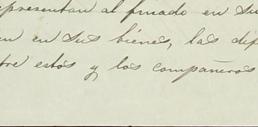 epresentan al finado en su
en en sus bienes, las dep
tre estos y los compañeros